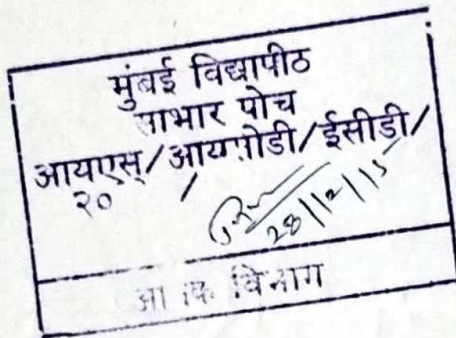 मुंबई विद्यापीठ
साभार पोच
आयएस्/आयपोडी/ईसीडी/
२० /
28/12/15
विभाग